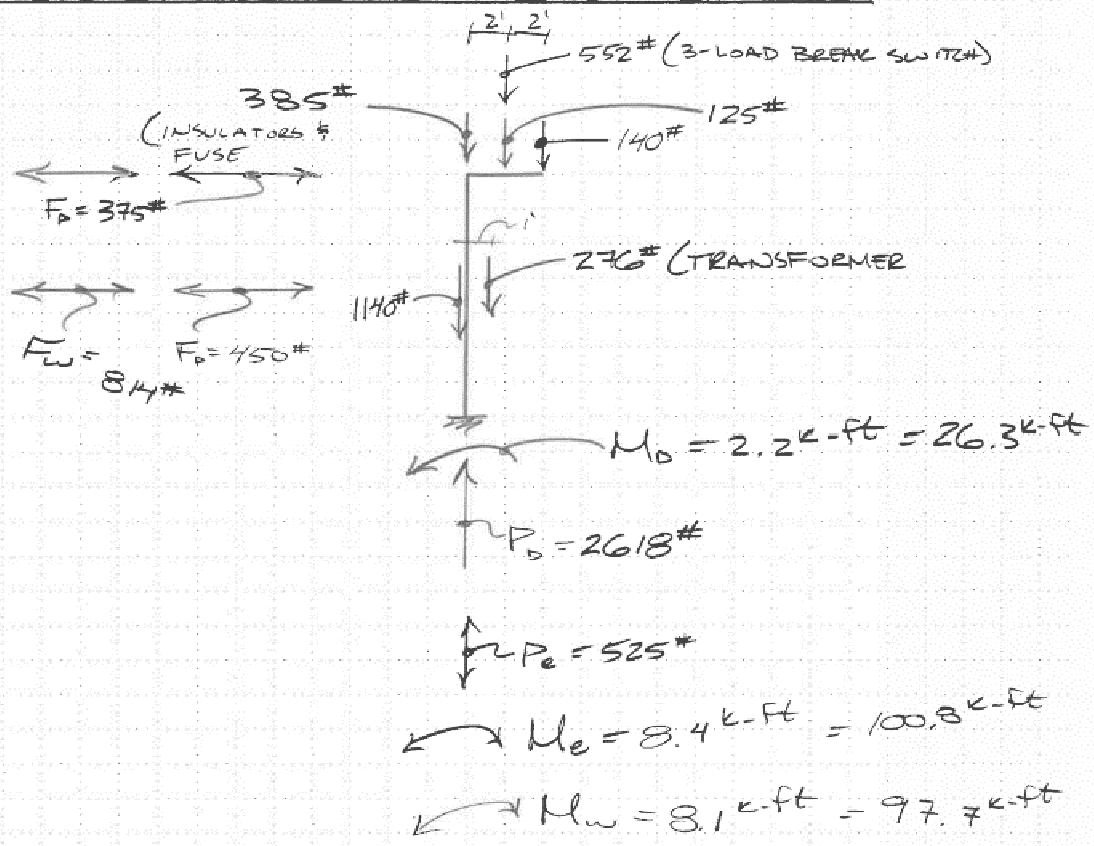 2' 2'
552# (3-LOAD BREAK SWITCH)
385#
125#
(INSULATORS &
FUSE
140#
F_p = 375#
1'
276# (TRANSFORMER
1140#
F_w =
814#
F_p = 450#
M_D = 2.2 k-ft = 26.3 k-ft
P_D = 2618#
P_e = 525#
M_e = 8.4 k-ft = 100.8 k-ft
M_w = 8.1 k-ft = 97.7 k-ft